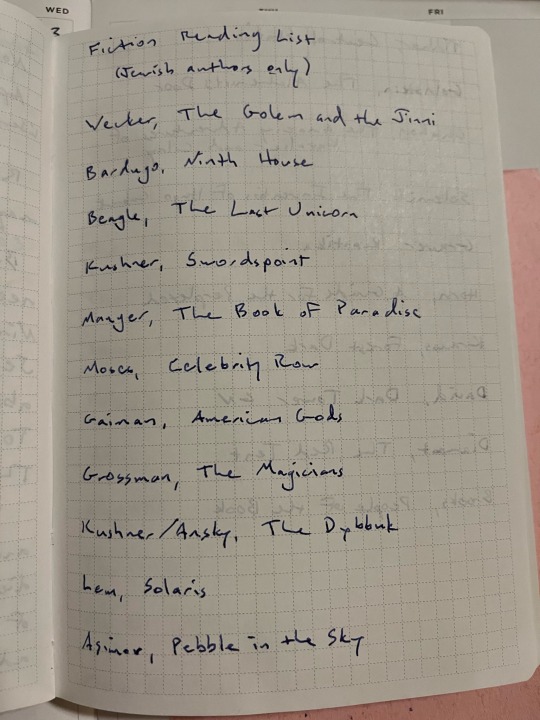 WED
FRI
3
Fiction Reading List
(Jewish authors only)
Vecker, The Golem and the Jinni
Bardugo, Ninth House
Beagle, The Last Unicorn
Kushner, Swordspoint
Manger, The Book of Paradise
Mosca, Celebrity Row
Gaiman, American Gods
Grossman, The Magicians
Kushner/Ansky, The Dybbuk
Lem, Solaris
Asimov, Pebble in the Sky